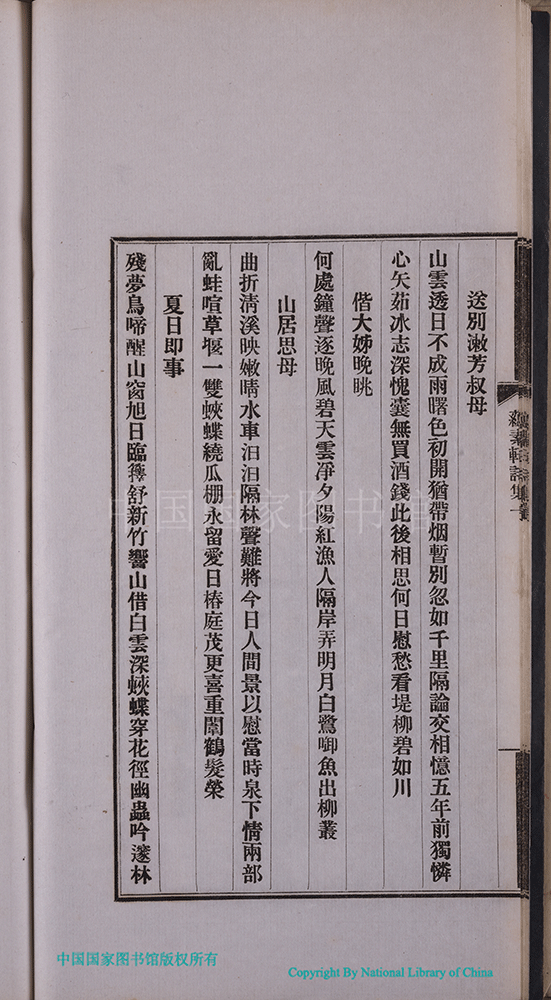 送別漱芳叔母
山雲透日不成雨曙色初開猶帶烟暫別忽如千里隔論交相憶五年前獨憐
心矢茹冰志深愧囊無買酒錢此後相思何日慰愁看堤柳碧如川
偕大姊晚眺
何處鐘聲逐晚風碧天雲淨夕陽紅漁人隔岸弄明月白鷺啣魚出柳叢
山居思母
曲折清溪映嫩晴水車汩汩隔林聲難將今日人間景以慰當時泉下情兩部
亂蛙喧草堰一雙蛺蝶繞瓜棚永留愛日椿庭茂更喜重闈鶴髮榮
夏日即事
殘夢鳥啼醒山窗旭日臨籜舒新竹響山借白雲深蛺蝶穿花徑幽蟲吟邃林
詩集一
中国国家图书馆
中国国家图书馆版权所有
Copyright By National Library of China